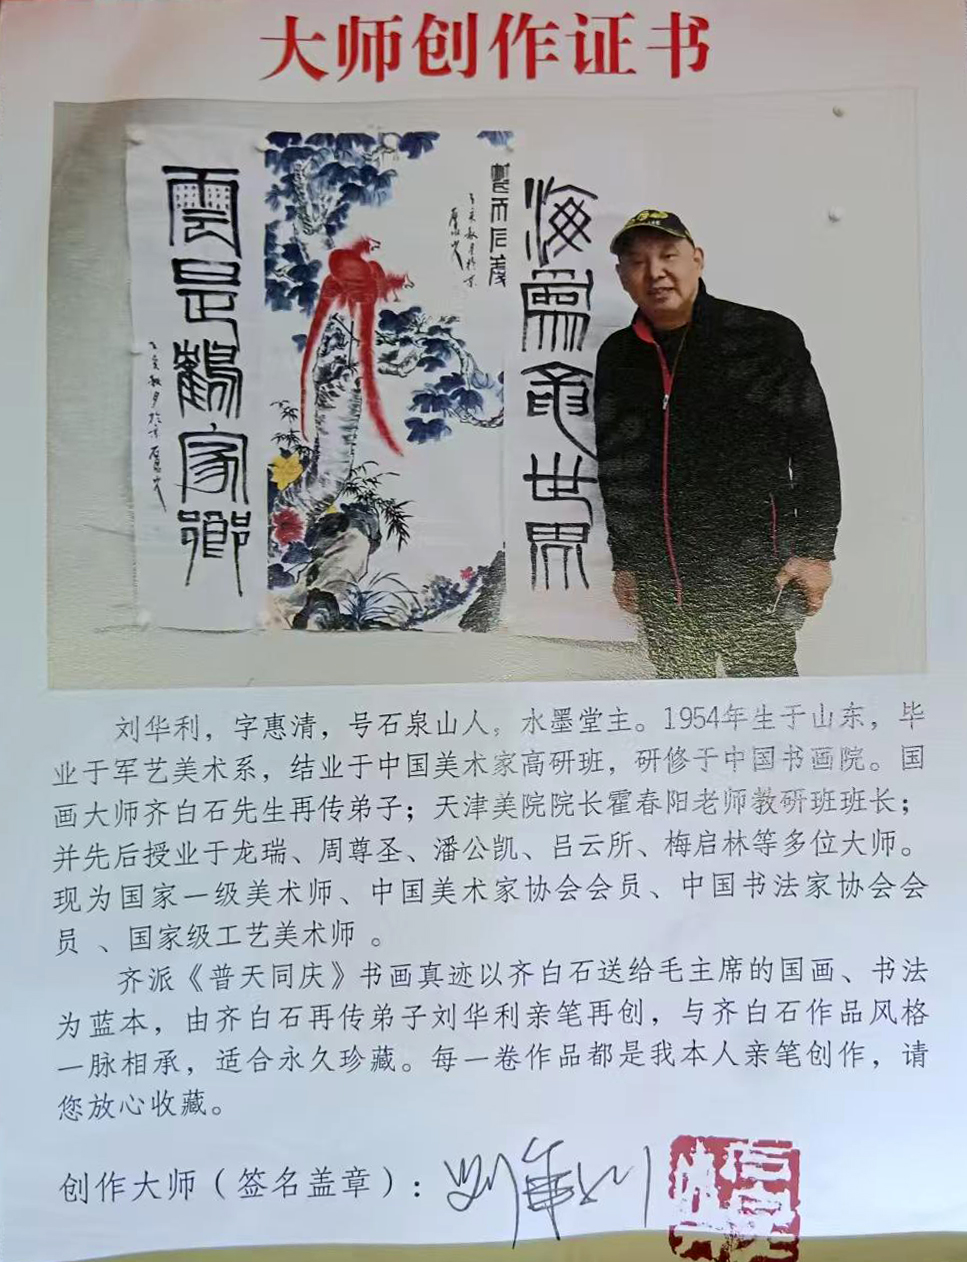 大师创作证书
海为龟世界
云是鹤家乡
刘华利，字惠清，号石泉山人，水墨堂主。1954年生于山东，毕
业于军艺美术系，结业于中国美术家高研班，研修于中国书画院。国
画大师齐白石先生再传弟子；天津美院院长霍春阳老师教研班班长；
并先后授业于龙瑞、周尊圣、潘公凯、吕云所、梅启林等多位大师。
现为国家一级美术师、中国美术家协会会员、中国书法家协会会
员 、国家级工艺美术师 。
齐派《普天同庆》书画真迹以齐白石送给毛主席的国画、书法
为蓝本，由齐白石再传弟子刘华利亲笔再创，与齐白石作品风格
一脉相承，适合永久珍藏。每一卷作品都是我本人亲笔创作，请
您放心收藏。
创作大师（签名盖章）：刘华利